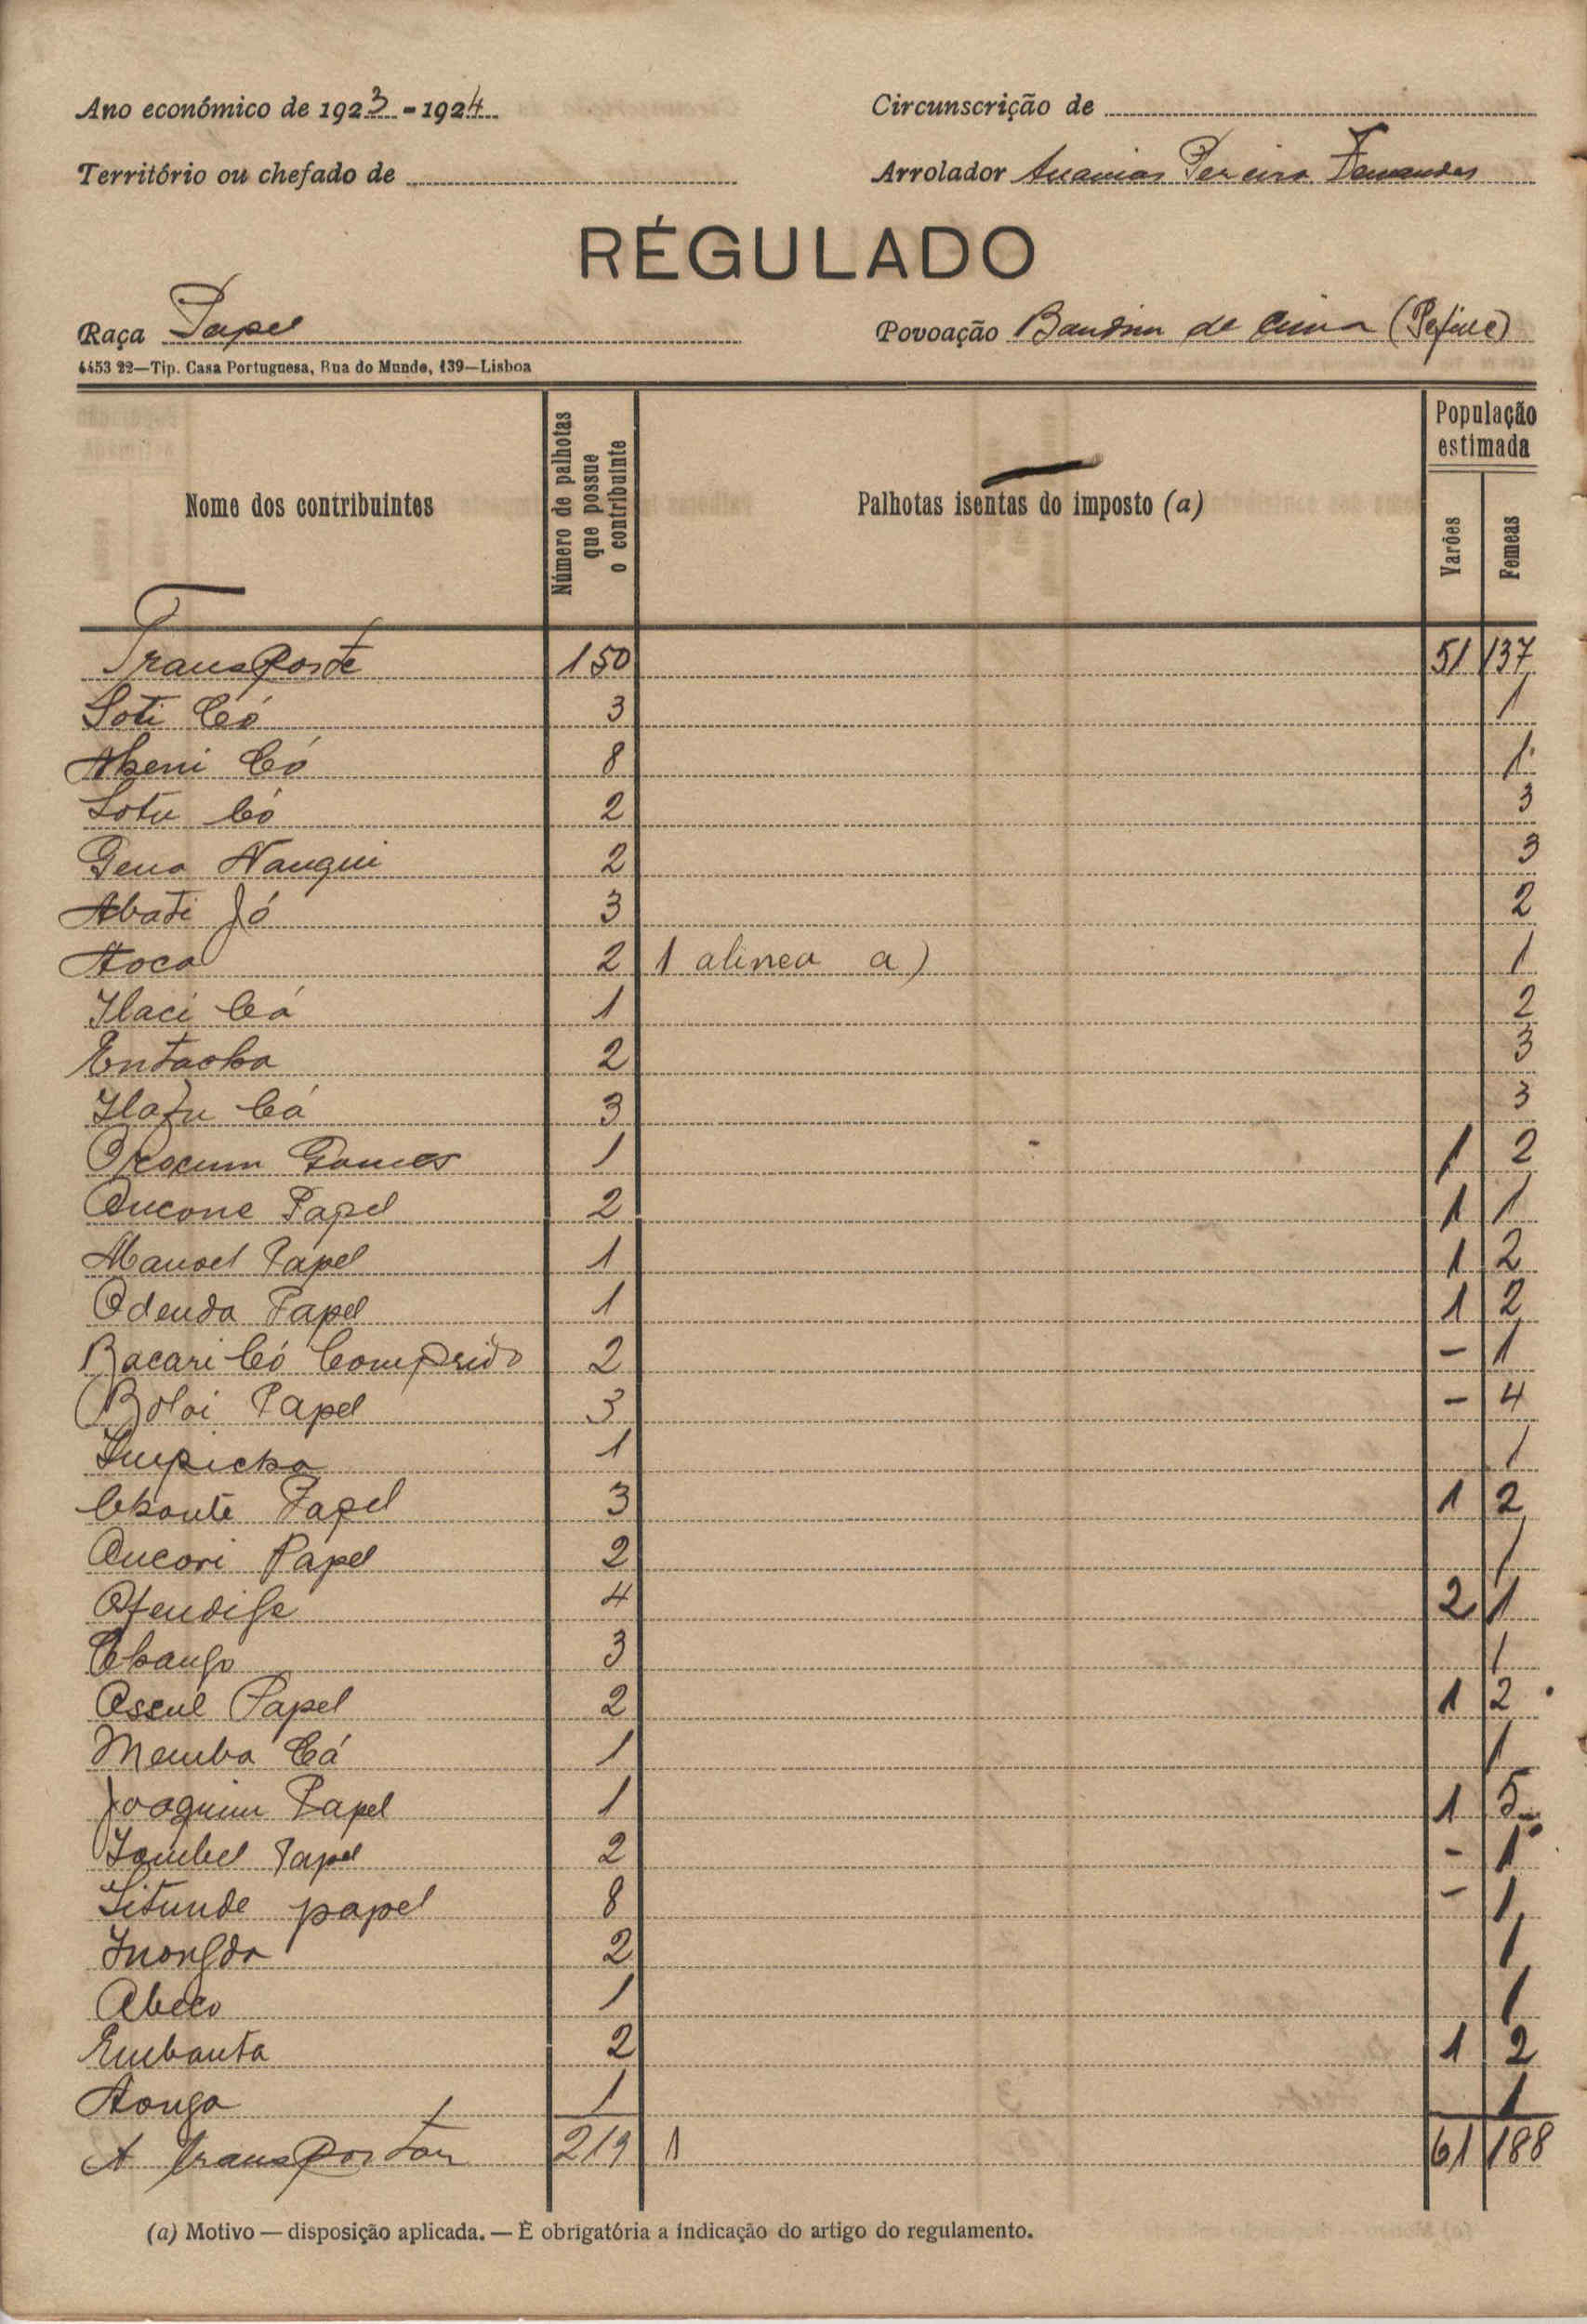 Ano económico de 1923-1924
Circunscrição de
Território ou chefado de
Arrolador Ananias Pereira Fernandes
RÉGULADO
Raça Papel
Povoação Bandim de Cima
4453 22—Tip. Casa Portuguesa, Rua do Mundo, 139—Lisboa
Nome dos contribuintes
Número de palhotas que possue o contribuinte
Palhotas isentas do imposto (a)
População estimada
Varões
Femeas
Transporte 150 51 137
Soti Có 3 1
Có 8 1
Lotu Có 2 3
Gena Nanqui 2 3
Abati Jó 3 2
Aoca 2 1 alinea a) 1
Ilaci Cá 1 2
2 3
Cá 3 3
Gomes 1 1 2
Papel 2 1 1
Manoel Papel 1 1 2
Odenda Papel 1 1 2
Bacari Có Comprido 2 - 1
Boloi Papel 3 - 4
1 1
Papel 3 1 2
Papel 2 1
4 2 1
3 1
Papel 2 1 2
Memba Cá 1 1
Joaquim Papel 1 1 5
Papel 2 - 1
Titunde papel 8 - 1
2 1
Abeco 1 1
Embanta 2 1 2
Aonga 1 1
A transportar 219 1 61 188
(a) Motivo — disposição aplicada. — È obrigatória a indicação do artigo do regulamento.